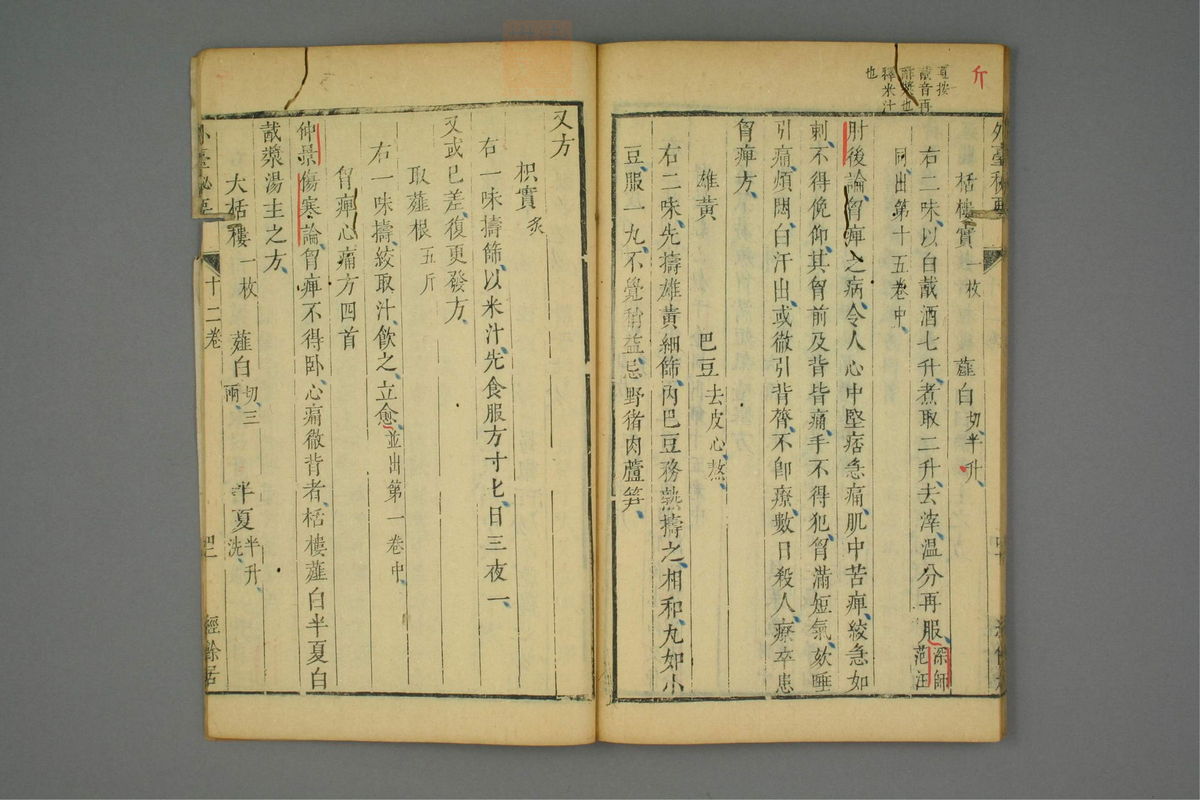 斤
直按
酨音再
酢漿也
釋米汁
也
外臺秘要
栝樓實一枚 薤白切半升
右二味以白酨酒七升煮取二升去滓溫分再服深師范汪
同出第十五卷中
肘後論胷痺之病令人心中堅痞急痛肌中苦痺絞急如
刺不得俛仰其胷前及背皆痛手不得犯胷滿短氣欬唾
引痛煩悶白汗出或徹引背膂不卽療數日殺人療卒患
胷痺方
雄黃 巴豆去皮心熬
右二味先擣雄黃細篩內巴豆務熱擣之相和丸如小
豆服一丸不覺稍益忌野猪肉蘆笋
又方
枳實炙
右一味擣篩以米汁先食服方寸匕日三夜一
又或已差復更發方
取薤根五斤
右一味擣絞取汁飲之立愈並出第一卷中
胷痺心痛方四首
仲景傷寒論胷痺不得卧心痛徹背者栝樓薤白半夏白
酨漿湯主之方
大栝樓一枚 薤白切三兩 半夏半升洗
外臺秘要
十二卷
經餘居